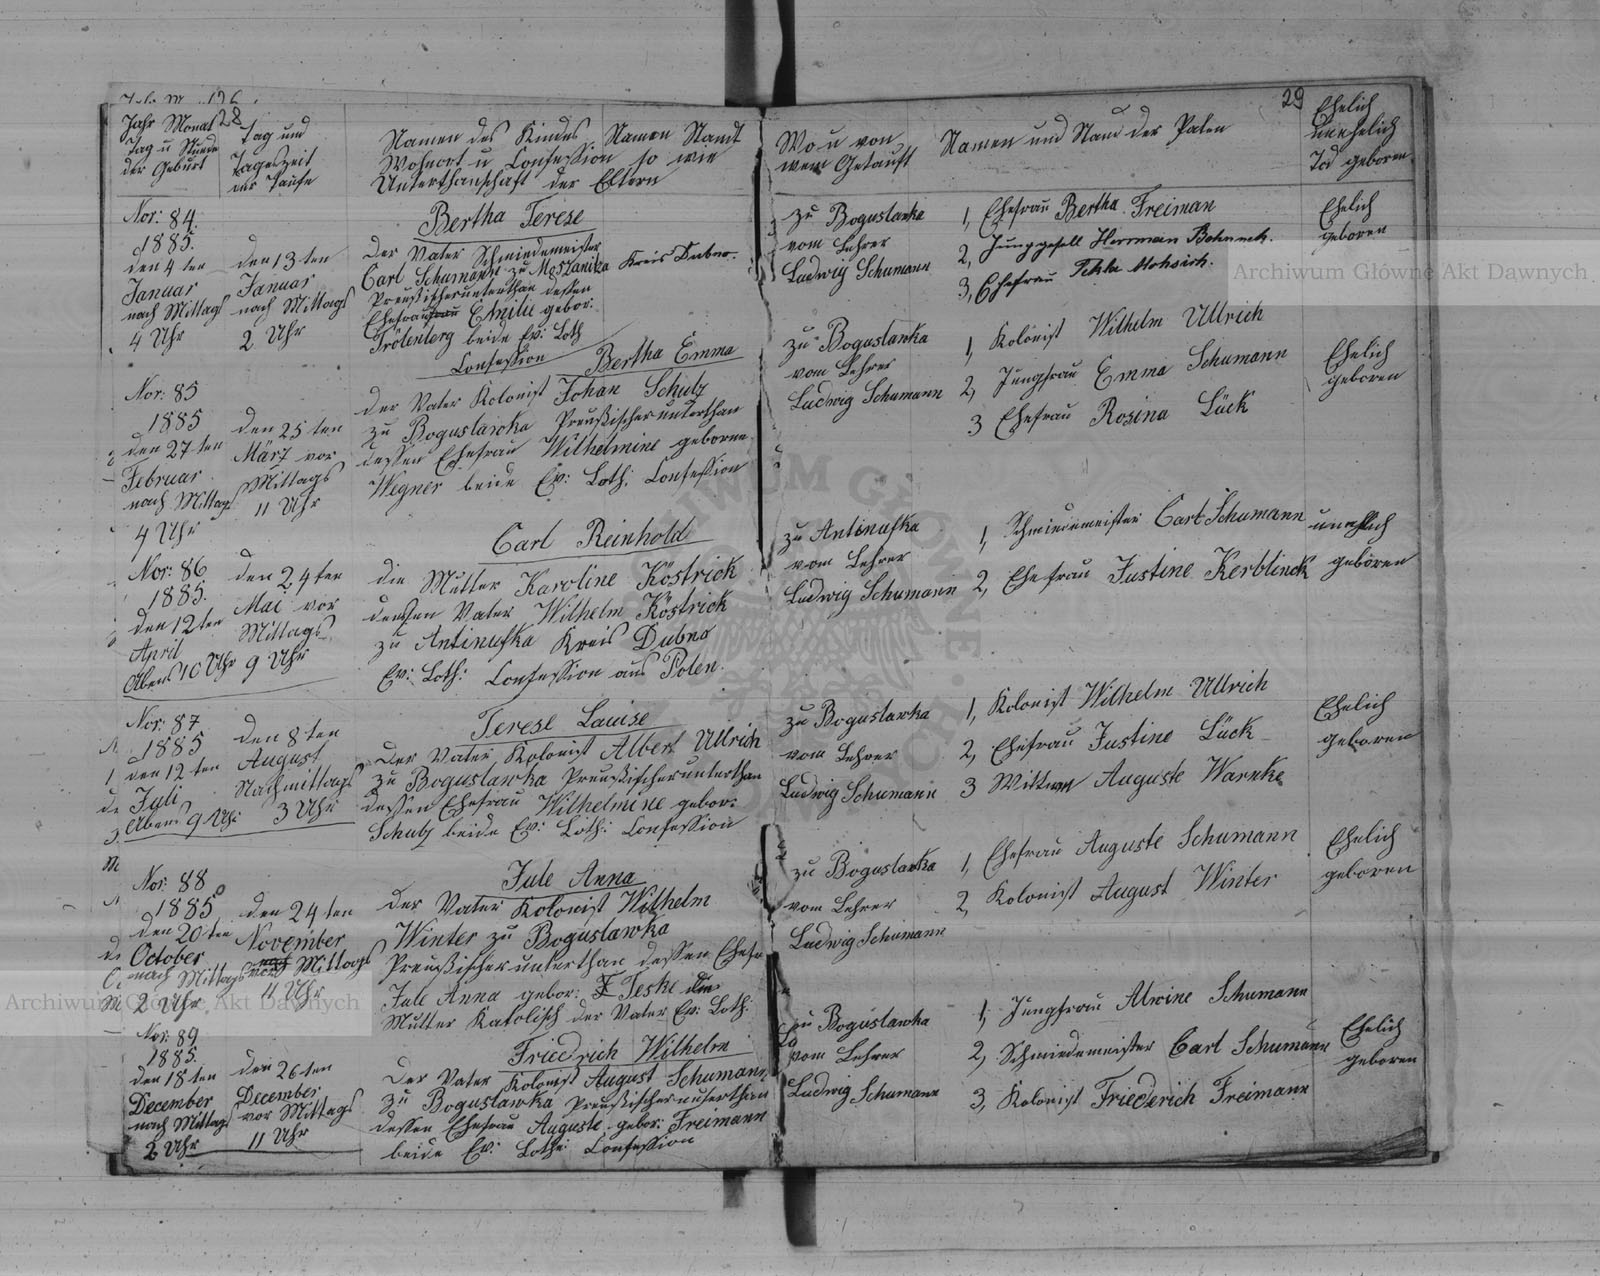 28
Jahr Monat
Tag u Stunde
der Geburt
Tag und
Tageszeit
der Taufe
Namen des Kindes Namen Standt
Wohnort u Confession so wie
Unterthanschaft der Eltern
Nor: 84.
1885.
den 4 ten
Januar
nach Mittags
4 Uhr
den 13 ten
Januar
nach Mittags
2 Uhr
Bertha Terese
Der Vater Schmiedemeister
Carl Schumann zu Moszanitza Kreis Dubno.
Preußischerunterthan dessen
Ehefrau Emilie gebor:
Frölenberg beide Ev: Loth
Confession
Nor: 85
1885
den 27 ten
Februar
nach Mittags
4 Uhr
den 25 ten
März vor
Mittags
11 Uhr
Bertha Emma
Der Vater Kolonist Johan Schulz
zu Boguslawka Preußischerunterthan
dessen Ehefrau Wilhelmine geborne
Wegner beide Ev: Loth: Confession
Nor: 86
1885.
den 12 ten
April
Abens 10 Uhr
den 24 ten
Mai vor
Mittags
9 Uhr
Carl Reinhold
die Mutter Karoline Köstrick
dessen Vater Wilhelm Köstrick
zu Antinufka Kreis Dubno
Ev: Loth: Confession aus Polen.
Nor: 87.
1885
den 12 ten
Juli
Abens 9 Uhr
den 8 ten
August
Nachmittags
3 Uhr
Terese Lauise
Der Vater Kolonist Albert Ullrich
zu Boguslawka Preußischerunterthan
dessen Ehefrau Wilhelmine gebor:
Schulz beide Ev: Loth: Confession
Nor: 88
1885
den 20 ten
October
nach Mittags
2 Uhr
den 24 ten
November
Mittags
11 Uhr
Jule Anna
Der Vater Kolonist Wilhelm
Winter zu Boguslawka
Preußischerunterthan dessen Ehefr
Jule Anna gebor: Teske die
Mutter Katolisch der Vater Ev: Loth:
Nor: 89
1885.
den 18 ten
December
nach Mittags
2 Uhr
den 26 ten
December
vor Mittags
11 Uhr
Friedrich Wilhelm
Der Vater Kolonist August Schumann
zu Boguslawka Preußischerunterthan
dessen Ehefrau Auguste gebor: Freimann
beide Ev: Loth: Confession
29
Wo u von
wem Getauft
Namen und Stand der Paten
Ehelich
unehelich
Tod geboren
zu Boguslawka
vom Lehrer
Ludwig Schumann
1, Ehefrau Bertha Freiman
2, Junggesell Herman Bohnnek.
3, Ehefrau
Ehelich
geboren
zu Boguslawka
vom Lehrer
Ludwig Schumann
1, Kolonist Wilhelm Ullrich
2, Jungfrau Emma Schumann
3 Ehefrau Rosina Lück
Ehelich
geboren
zu Antinufka
vom Lehrer
Ludwig Schumann
1, Schmiedemeister Carl Schumann
2, Ehefrau Justine Kerblinck
unehlich
geboren
zu Boguslawka
vom Lehrer
Ludwig Schumann
1, Kolonist Wilhelm Ullrich
2, Ehefrau Justine Lück
3 Wittwe Auguste Warnke
Ehelich
geboren
zu Boguslawka
vom Lehrer
Ludwig Schumann
1, Ehefrau Auguste Schumann
2, Kolonist August Winter
Ehelich
geboren
zu Boguslawka
vom Lehrer
Ludwig Schumann
1, Jungfrau Alwine Schumann
2, Schmiedemeister Carl Schumann
3, Kolonist Friederich Freimann
Ehelich
geboren
Archiwum Główne Akt Dawnych
Archiwum Główne Akt Dawnych